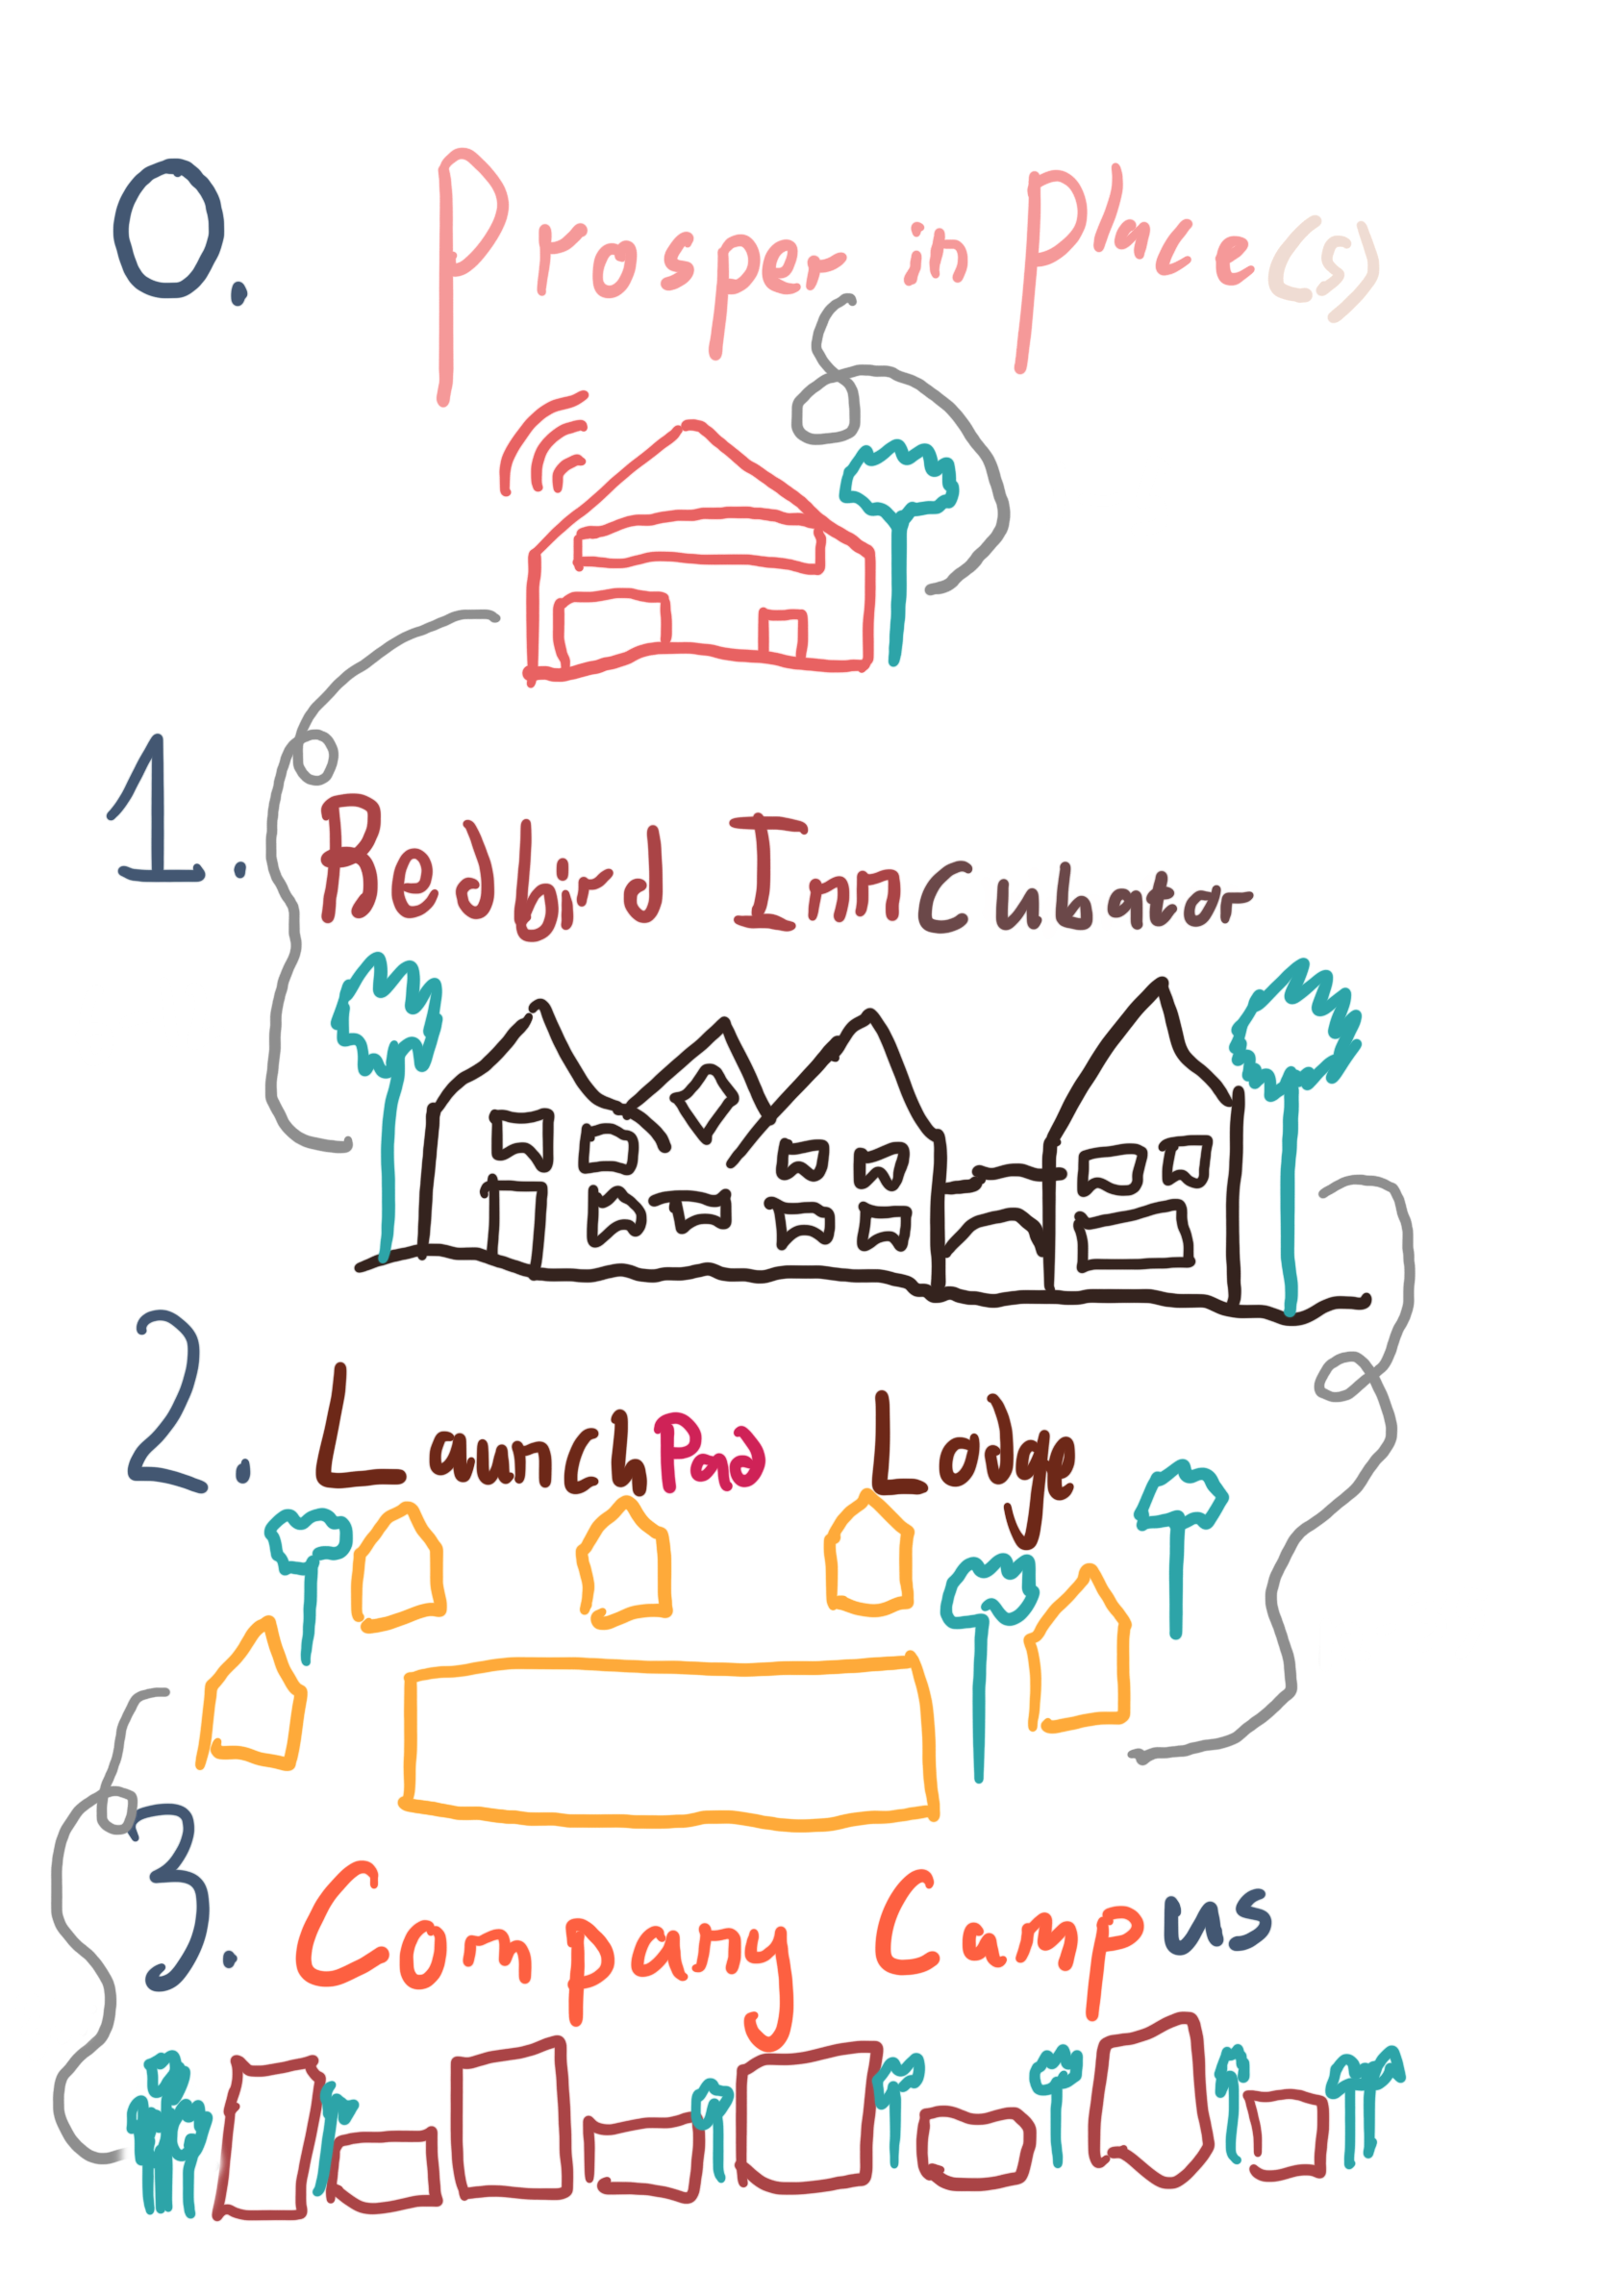 0. Prosper in Place(s)
1. Redbird InnCubator
2. LaunchPad Lodge
3. Company Campus